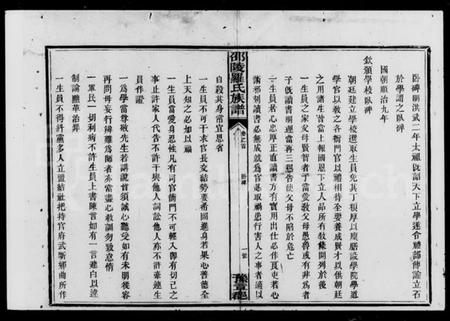 臥碑明洪武二年太祖既詔天下立學遂命禮部傳諭立石
於學謂之臥碑
國朝順治九年
欽頒學校臥碑
朝廷建立學校選取生員免其丁糧厚以廩膳設學院學道
學官以教之各衙門官以禮相待全要養成賢才以供朝廷
之用諸生皆當上報國恩下立人品所有教條開列於後
一生員之家父母賢智者子當受教父母愚魯或有非為者
子既讀書明理當再三懇告使父母不陷於危亡
一生員若心忠厚正直讀書方有實用出仕必作良吏若心
術邪刻讀書必無成就為官必取禍患行害人之事者
自殺其身常宜思省
一生員不可干求官長交結勢要希圖進身若果心善德全
上天知之必加以福
一生員當愛身忍性凡有司官衙門不可輕入即有切己之
事止許家人代告不許干與他人詞訟他人亦不許牽連生
員作證
一為學當尊敬先生若講說皆須誠心聽受如有未明從容
再問毋妄行辯難為師者亦當盡心教訓勿致怠惰
一軍民一切利病不許生員上書陳言如有一言建白以違
制論黜革治罪
一生員不得許黨多人立盟結社把持官府武斷鄉曲所作
邵陵羅氏族譜
卷之首
臥碑
一
豫章堂